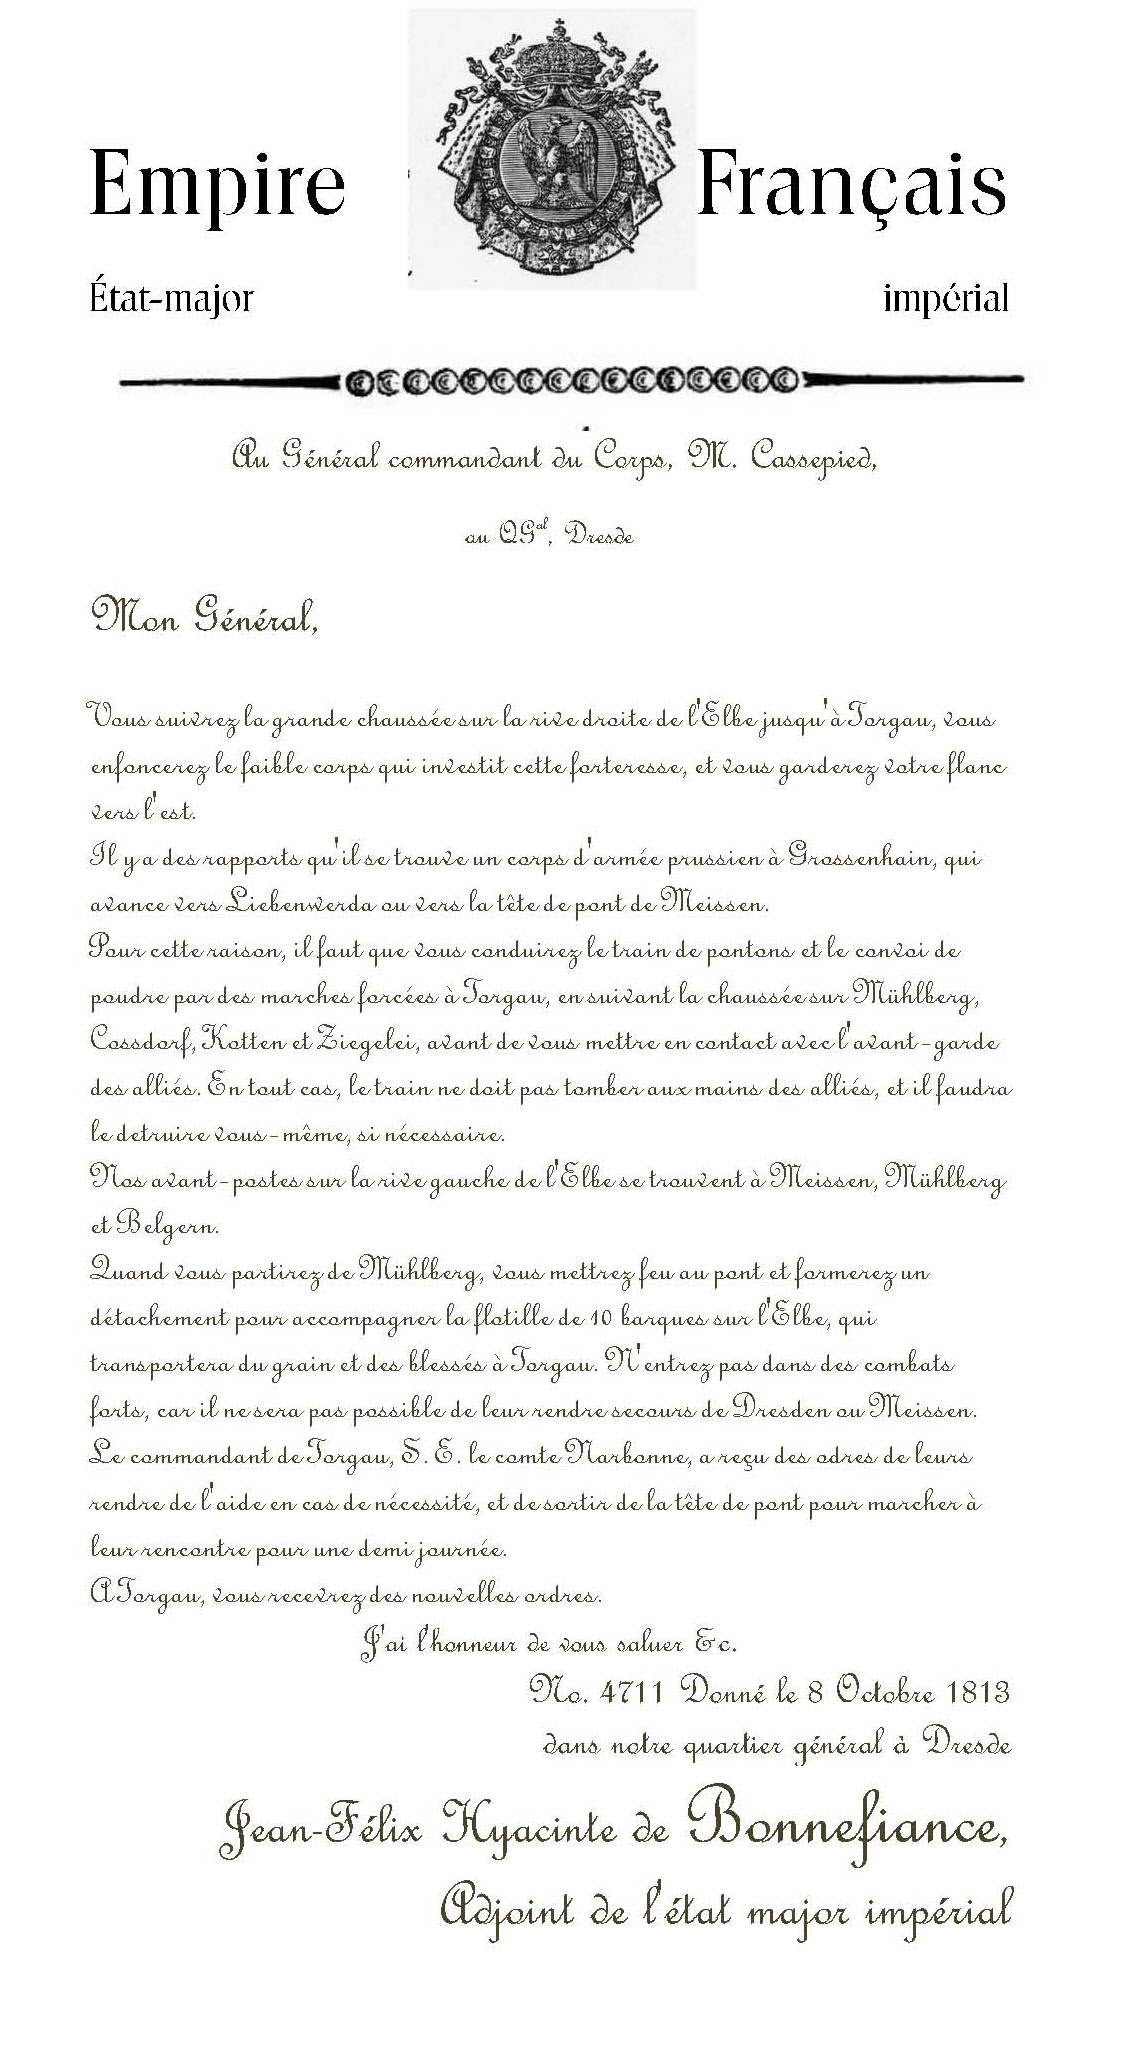 Empire Français
État-major impérial
Au Général commandant du Corps, M. Cassepied,
au QGal, Dresde
Mon Général,
Vous suivrez la grande chaussée sur la rive droite de l'Elbe jusqu'à Torgau, vous
enfoncerez le faible corps qui investit cette forteresse, et vous garderez votre flanc
vers l'est.
Il y a des rapports qu'il se trouve un corps d'armée prussien à Grossenhain, qui
avance vers Liebenwerda ou vers la tête de pont de Meissen.
Pour cette raison, il faut que vous conduirez le train de pontons et le convoi de
poudre par des marches forcées à Torgau, en suivant la chaussée sur Mühlberg,
Cossdorf, Kotten et Ziegelei, avant de vous mettre en contact avec l'avant-garde
des alliés. En tout cas, le train ne doit pas tomber aux mains des alliés, et il faudra
le detruire vous-même, si nécessaire.
Nos avant-postes sur la rive gauche de l'Elbe se trouvent à Meissen, Mühlberg
et Belgern.
Quand vous partirez de Mühlberg, vous mettrez feu au pont et formerez un
détachement pour accompagner la flotille de 10 barques sur l'Elbe, qui
transportera du grain et des blessés à Torgau. N'entrez pas dans des combats
forts, car il ne sera pas possible de leur rendre secours de Dresden ou Meissen.
Le commandant de Torgau, S. E. le comte Narbonne, a reçu des odres de leurs
rendre de l'aide en cas de nécessité, et de sortir de la tête de pont pour marcher à
leur rencontre pour une demi journée.
A Torgau, vous recevrez des nouvelles ordres.
J'ai l'honneur de vous saluer &c.
No. 4711 Donné le 8 Octobre 1813
dans notre quartier général à Dresde
Jean-Félix Hyacinte de Bonnefiance,
Adjoint de l'état major impérial